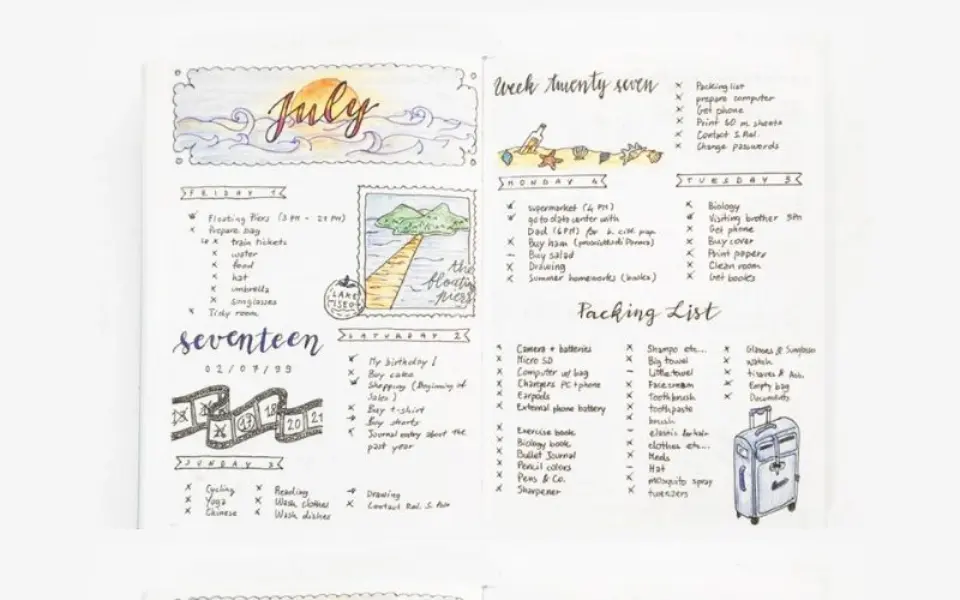 July
FRIDAY 1
Floating Piers (3 PM - 21 PM)
x Prepare bag
↳ x train tickets
x water
x food
x hat
x umbrella
x sunglasses
x Tidy room
the
floating
piers
LAKE
ISEO
seventeen
02/07/99
17 18
20 21
SATURDAY 2
My birthday!
x Buy cake
Shopping (Beginning of
Sales)
x Buy t-shirt
→ Buy shorts
x Journal entry about the
past year
SUNDAY 3
x Cycling
x Yoga
x Chinese
x Reading
x Wash clothes
x Wash dishes
→ Drawing
x Contact Ral. S.
Week twenty seven
x Packing list
x prepare computer
x Get phone
x Print 60 m. sheets
x Contact S. Ral.
x Change passwords
MONDAY 4
supermarket (4 PM)
go to data center with
Dad (6 PM) for
x Buy ham
– Buy salad
x Drawing
x Summer homeworks (books)
TUESDAY 5
x Biology
Visiting brother
x Get phone
x Buy cover
x Print papers
x Clean room
x Get books
Packing List
x Camera + batteries
x Micro SD
x Computer w/ bag
x Chargers PC + phone
x Earpods
x External phone battery
x Exercise book
x Biology book
x Bullet Journal
x Pencil colors
x Pens & Co.
x Sharpener
x Shampo etc...
x Big towel
– Little towel
x Face cream
x Toothbrush
x toothpaste
x brush
– elastic for hair
x clothes etc...
x Meds
– Hat
x mosquito spray
x tweezers
x Glasses & Sunglasses
x watch
x tissues &
x Empty bag
x Documents